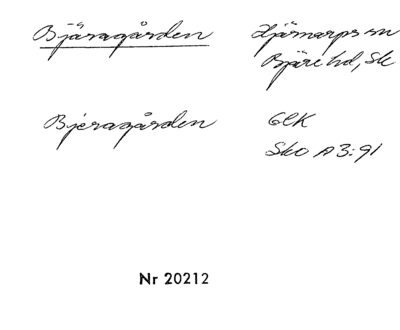 Bjäragården
Hjärnarps sn
Bjäre hd, Sk
Bjeragården
GEK
Sko A 3:91
Nr 20212